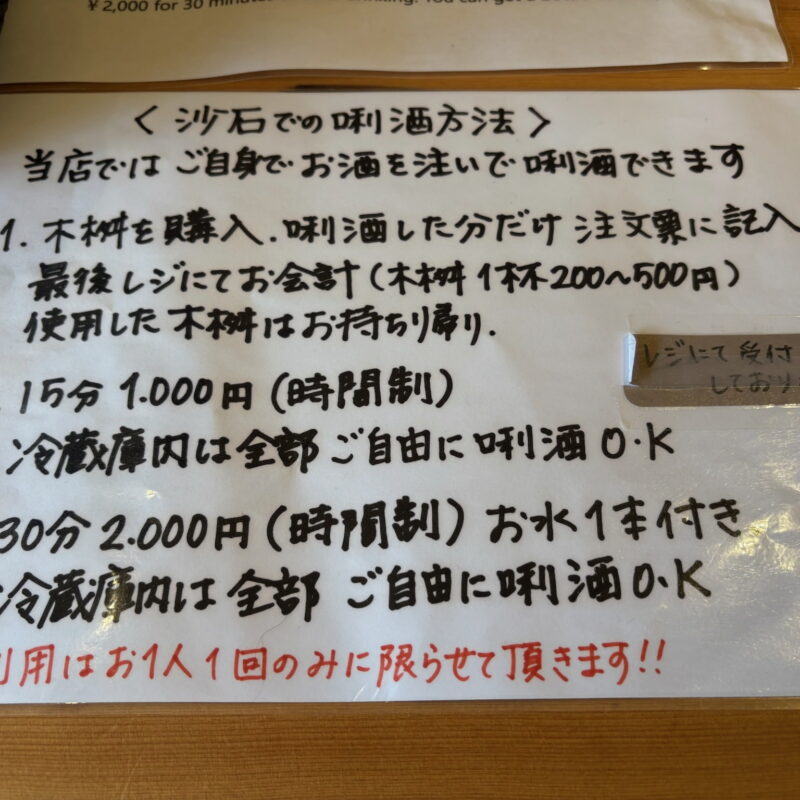 ¥2,000 for 30 minutes drinking. You can get a
〈沙石での唎酒方法〉
当店では ご自身で お酒を注いで 唎酒できます
1. 木桝を購入.唎酒した分だけ 注文票に記入
最後レジにてお会計(木桝1杯200〜500円)
使用した木桝はお持ち帰り.
レジにて受付
しており
15分 1.000円(時間制)
冷蔵庫内は全部 ご自由に唎酒O・K
30分 2.000円(時間制) お水1本付き
冷蔵庫内は全部 ご自由に唎酒O・K
利用はお1人1回のみに限らせて頂きます!!